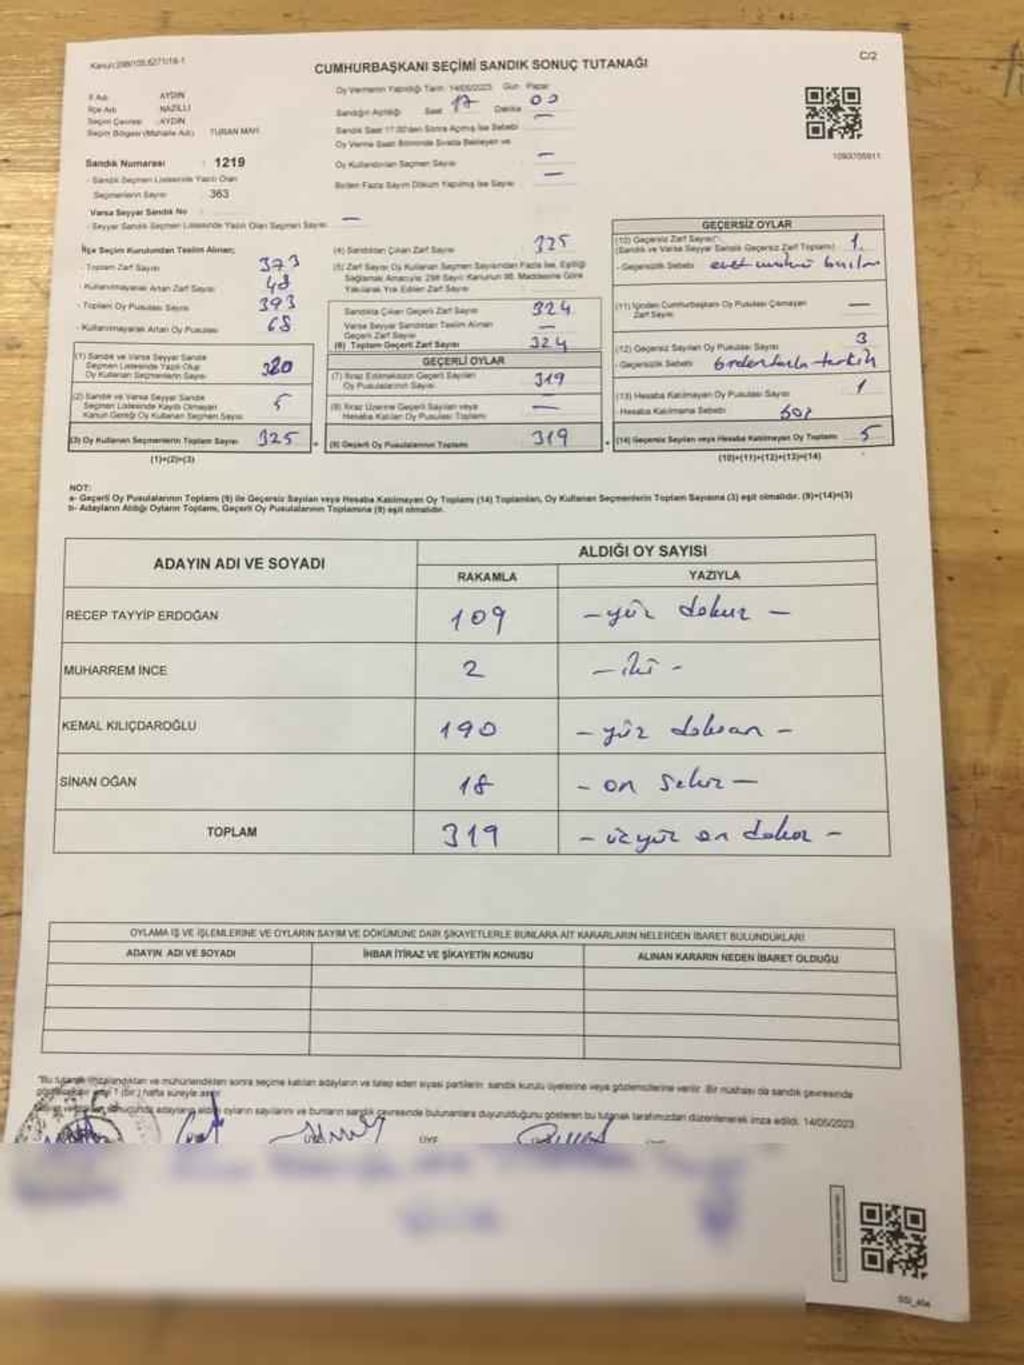 Kanun:298/105,6271/18-1
C/2
CUMHURBAŞKANI SEÇİMİ SANDIK SONUÇ TUTANAĞI
İl Adı AYDIN
İlçe Adı NAZİLLİ
Seçim Çevresi AYDIN
Seçim Bölgesi (Mahalle Adı) TURAN MAH.
Sandık Numarası : 1219
- Sandık Seçmen Listesinde Yazılı Olan
Seçmenlerin Sayısı 363
Varsa Seyyar Sandık No
- Seyyar Sandık Seçmen Listesinde Yazılı Olan Seçmen Sayısı: —
Oy Vermenin Yapıldığı Tarih: 14/05/2023 Gün: Pazar
Sandığın Açıldığı Saat 17 Dakika 00
Sandık Saat 17.00'den Sonra Açılmış İse Sebebi —
Oy Verme Saati Bitiminde Sırada Bekleyen ve
Oy Kullandırılan Seçmen Sayısı —
Birden Fazla Sayım Döküm Yapılmış İse Sayısı —
1090705911
İlçe Seçim Kurulundan Teslim Alınan;
- Toplam Zarf Sayısı 373
- Kullanılmayarak Artan Zarf Sayısı 48
- Toplam Oy Pusulası Sayısı 393
- Kullanılmayarak Artan Oy Pusulası 68
(1) Sandık ve Varsa Seyyar Sandık
Seçmen Listesinde Yazılı Olup
Oy Kullanan Seçmenlerin Sayısı 320
(2) Sandık ve Varsa Seyyar Sandık
Seçmen Listesinde Kayıtlı Olmayan
Kanun Gereği Oy Kullanan Seçmen Sayısı 5
(3) Oy Kullanan Seçmenlerin Toplam Sayısı 325
(1)+(2)=(3)
(4) Sandıktan Çıkan Zarf Sayısı 325
(5) Zarf Sayısı Oy Kullanan Seçmen Sayısından Fazla İse, Eşitliği
Sağlamak Amacıyla; 298 Sayılı Kanunun 98. Maddesine Göre
Yakılarak Yok Edilen Zarf Sayısı
Sandıkta Çıkan Geçerli Zarf Sayısı 324
Varsa Seyyar Sandıktan Teslim Alınan
Geçerli Zarf Sayısı —
(6) Toplam Geçerli Zarf Sayısı 324
GEÇERLİ OYLAR
(7) İtiraz Edilmeksizin Geçerli Sayılan
Oy Pusulalarının Sayısı 319
(8) İtiraz Üzerine Geçerli Sayılan veya
Hesaba Katılan Oy Pusulaları Toplamı —
(9) Geçerli Oy Pusulalarının Toplamı 319
GEÇERSİZ OYLAR
(10) Geçersiz Zarf Sayısı 1
(Sandık ve Varsa Seyyar Sandık Geçersiz Zarf Toplamı)
- Geçersizlik Sebebi
(11) İçinden Cumhurbaşkanı Oy Pusulası Çıkmayan
Zarf Sayısı —
(12) Geçersiz Sayılan Oy Pusulası Sayısı 3
- Geçersizlik Sebebi 1 den fazla tercih
(13) Hesaba Katılmayan Oy Pusulası Sayısı 1
- Hesaba Katılmama Sebebi boş
(14) Geçersiz Sayılan veya Hesaba Katılmayan Oy Toplamı 5
(10)+(11)+(12)+(13)=(14)
NOT:
a- Geçerli Oy Pusulalarının Toplamı (9) ile Geçersiz Sayılan veya Hesaba Katılmayan Oy Toplamı (14) Toplamları, Oy Kullanan Seçmenlerin Toplam Sayısına (3) eşit olmalıdır. (9)+(14)=(3)
b- Adayların Aldığı Oyların Toplamı, Geçerli Oy Pusulalarının Toplamına (9) eşit olmalıdır.
ADAYIN ADI VE SOYADI
ALDIĞI OY SAYISI
RAKAMLA YAZIYLA
RECEP TAYYİP ERDOĞAN 109 - yüz dokuz -
MUHARREM İNCE 2 - iki -
KEMAL KILIÇDAROĞLU 190 - yüz doksan -
SİNAN OĞAN 18 - on sekiz -
TOPLAM 319 - üçyüz on dokuz -
OYLAMA İŞ VE İŞLEMLERİNE VE OYLARIN SAYIM VE DÖKÜMÜNE DAİR ŞİKAYETLERLE BUNLARA AİT KARARLARIN NELERDEN İBARET BULUNDUKLARI
ADAYIN ADI VE SOYADI İHBAR İTİRAZ VE ŞİKAYETİN KONUSU ALINAN KARARIN NEDEN İBARET OLDUĞU
"Bu tutanak imzalandıktan ve mühürlendikten sonra seçime katılan adayların ve talep eden siyasi partilerin sandık kurulu üyelerine veya gözlemcilerine verilir. Bir nüshası da sandık çevresinde
1 (bir) hafta süreyle asılır.
sonucunda adayların aldığı oyların sayılarını ve bunların sandık çevresinde bulunanlara duyurulduğunu gösteren bu tutanak tarafımızdan düzenlenerek imza edildi. 14/05/2023
ÜYE